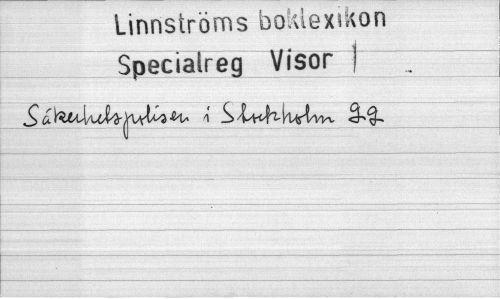 Linnströms boklexikon
Specialreg Visor |
Säkerhetspolisen i Stockholm 99